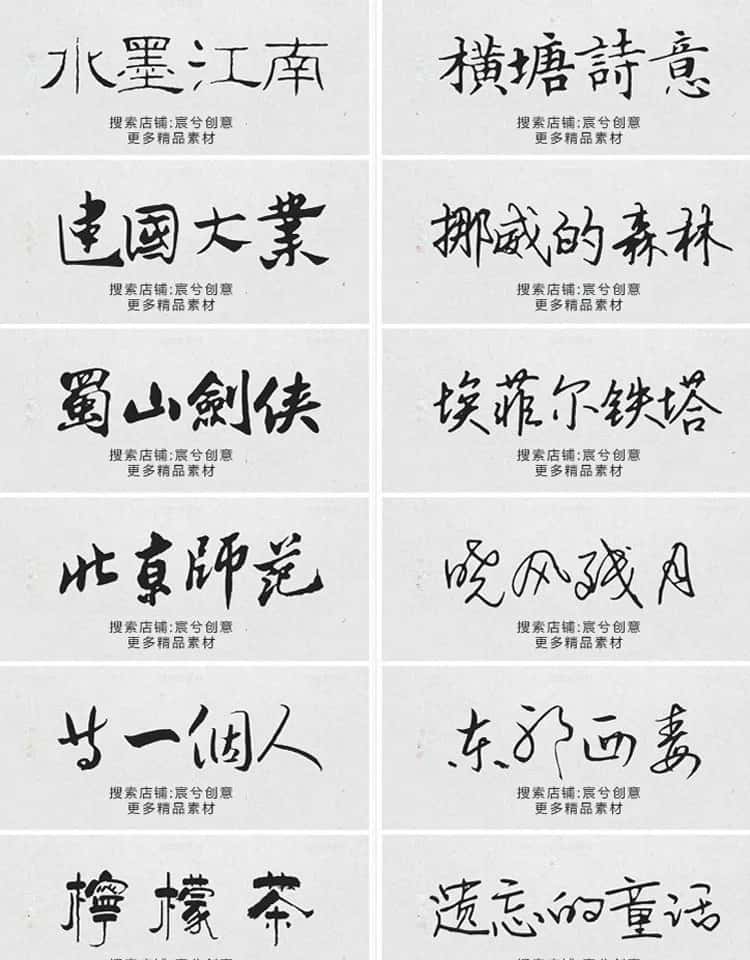 水墨江南
搜索店铺:宸兮创意
更多精品素材
横塘詩意
搜索店铺:宸兮创意
更多精品素材
建國大業
搜索店铺:宸兮创意
更多精品素材
挪威的森林
搜索店铺:宸兮创意
更多精品素材
蜀山劍侠
搜索店铺:宸兮创意
更多精品素材
埃菲尔铁塔
搜索店铺:宸兮创意
更多精品素材
北京師范
搜索店铺:宸兮创意
更多精品素材
晓风残月
搜索店铺:宸兮创意
更多精品素材
等一個人
搜索店铺:宸兮创意
更多精品素材
东邪西毒
搜索店铺:宸兮创意
更多精品素材
檸檬茶
遗忘的童话